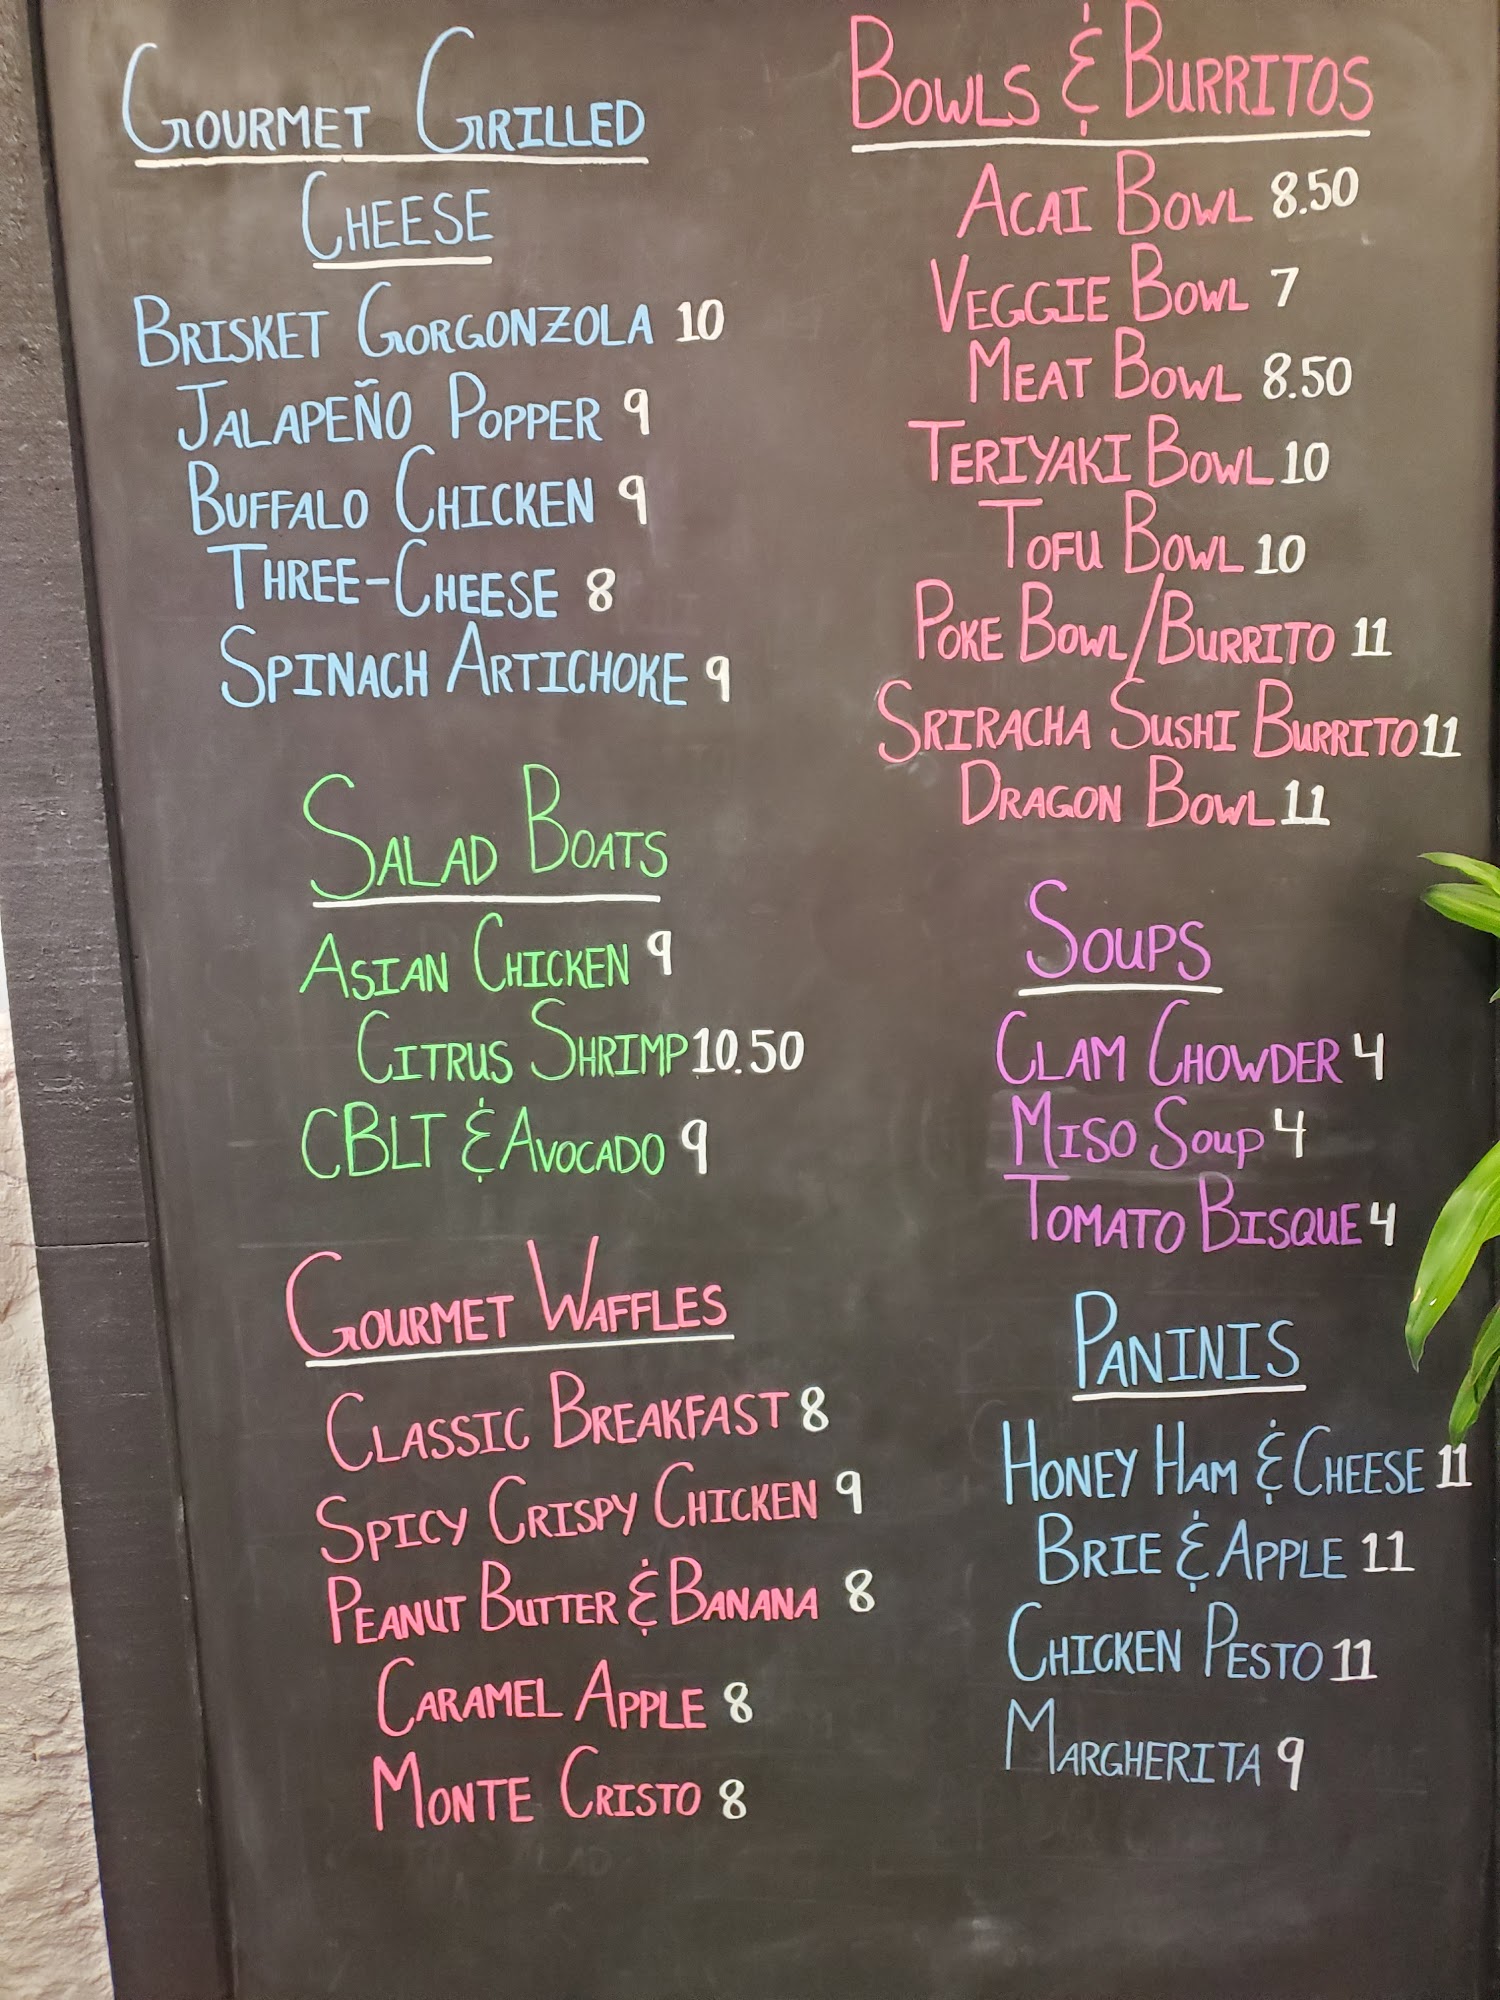 Gourmet Grilled
Cheese
Brisket Gorgonzola 10
Jalapeño Popper 9
Buffalo Chicken 9
Three-Cheese 8
Spinach Artichoke 9
Salad Boats
Asian Chicken 9
Citrus Shrimp 10.50
CBLT & Avocado 9
Gourmet Waffles
Classic Breakfast 8
Spicy Crispy Chicken 9
Peanut Butter & Banana 8
Caramel Apple 8
Monte Cristo 8
Bowls & Burritos
Acai Bowl 8.50
Veggie Bowl 7
Meat Bowl 8.50
Teriyaki Bowl 10
Tofu Bowl 10
Poke Bowl/Burrito 11
Sriracha Sushi Burrito 11
Dragon Bowl 11
Soups
Clam Chowder 4
Miso Soup 4
Tomato Bisque 4
Paninis
Honey Ham & Cheese 11
Brie & Apple 11
Chicken Pesto 11
Margherita 9